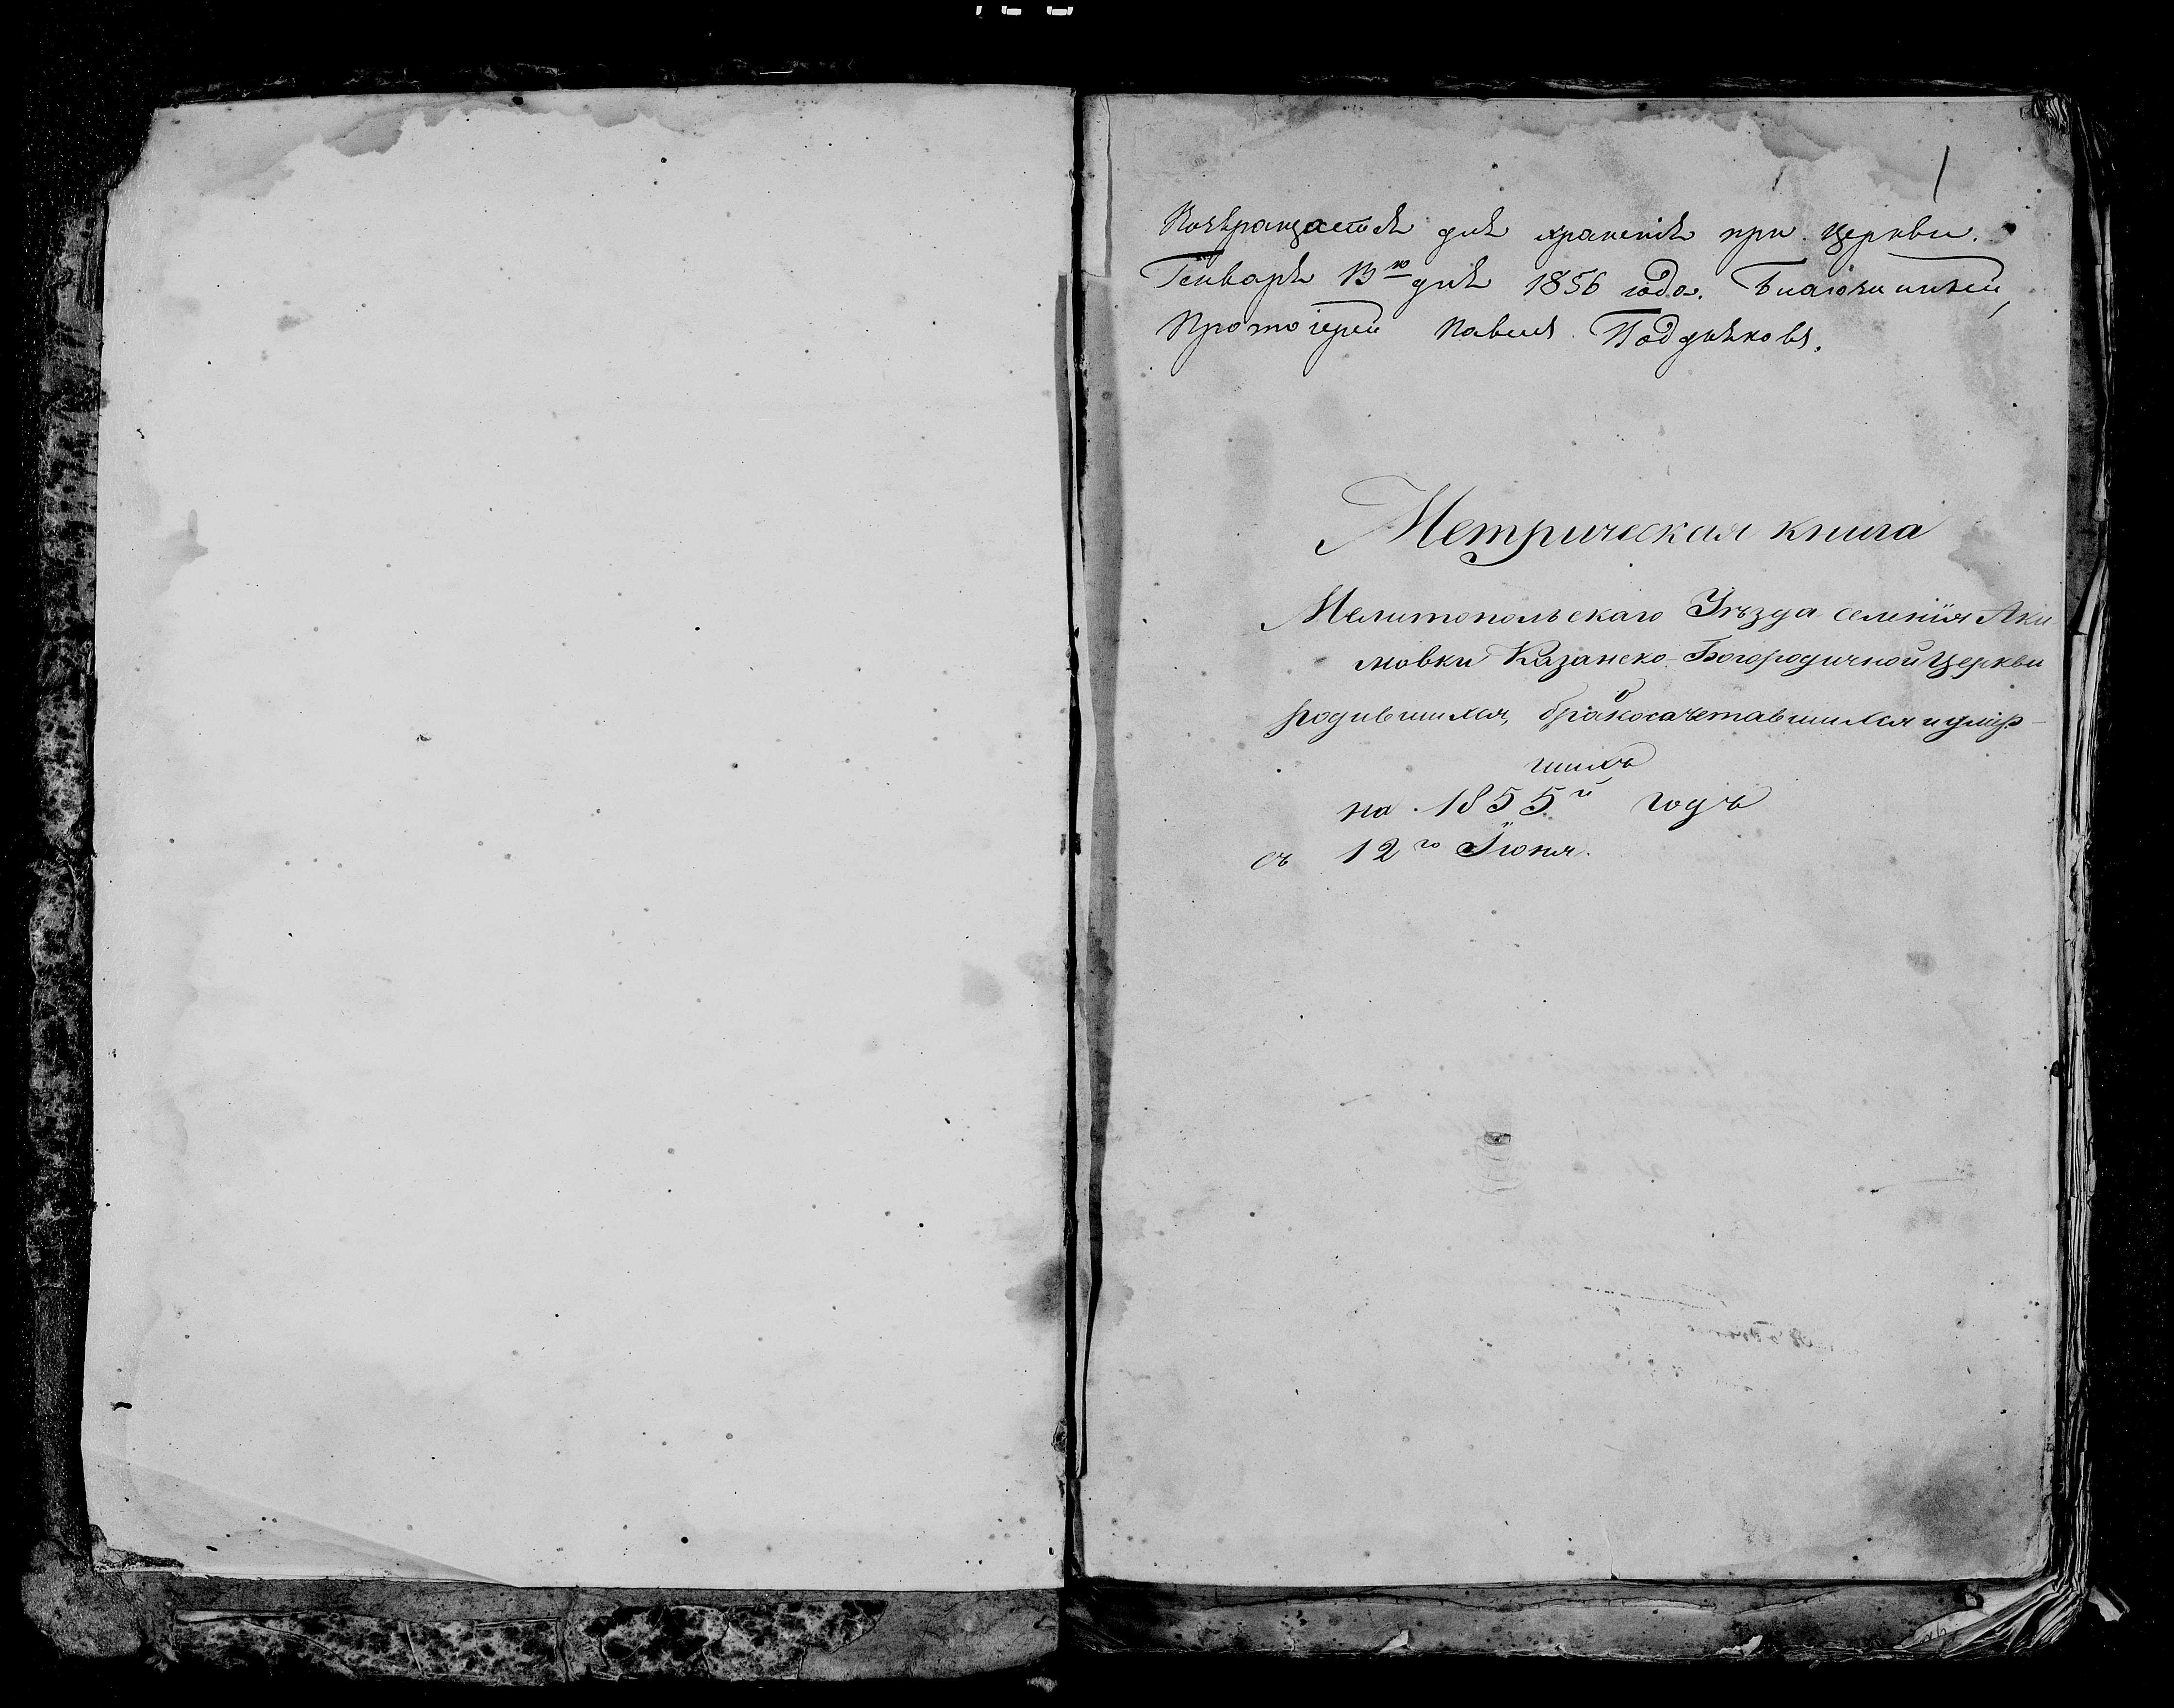 1
Возвращается для храненія при Церкви.
Генваря 13го дня 1856 года. Благочинный,
Протоіерей Павелъ Поддьяковъ.
Метрическая книга
Мелитопольскаго Уѣзда селенія Аки
мовки Казанско-Богородичной Церкви
родившихся, бракосочетавшихся и умер-
шихъ
на 1855й годъ
съ 12го Іюня.